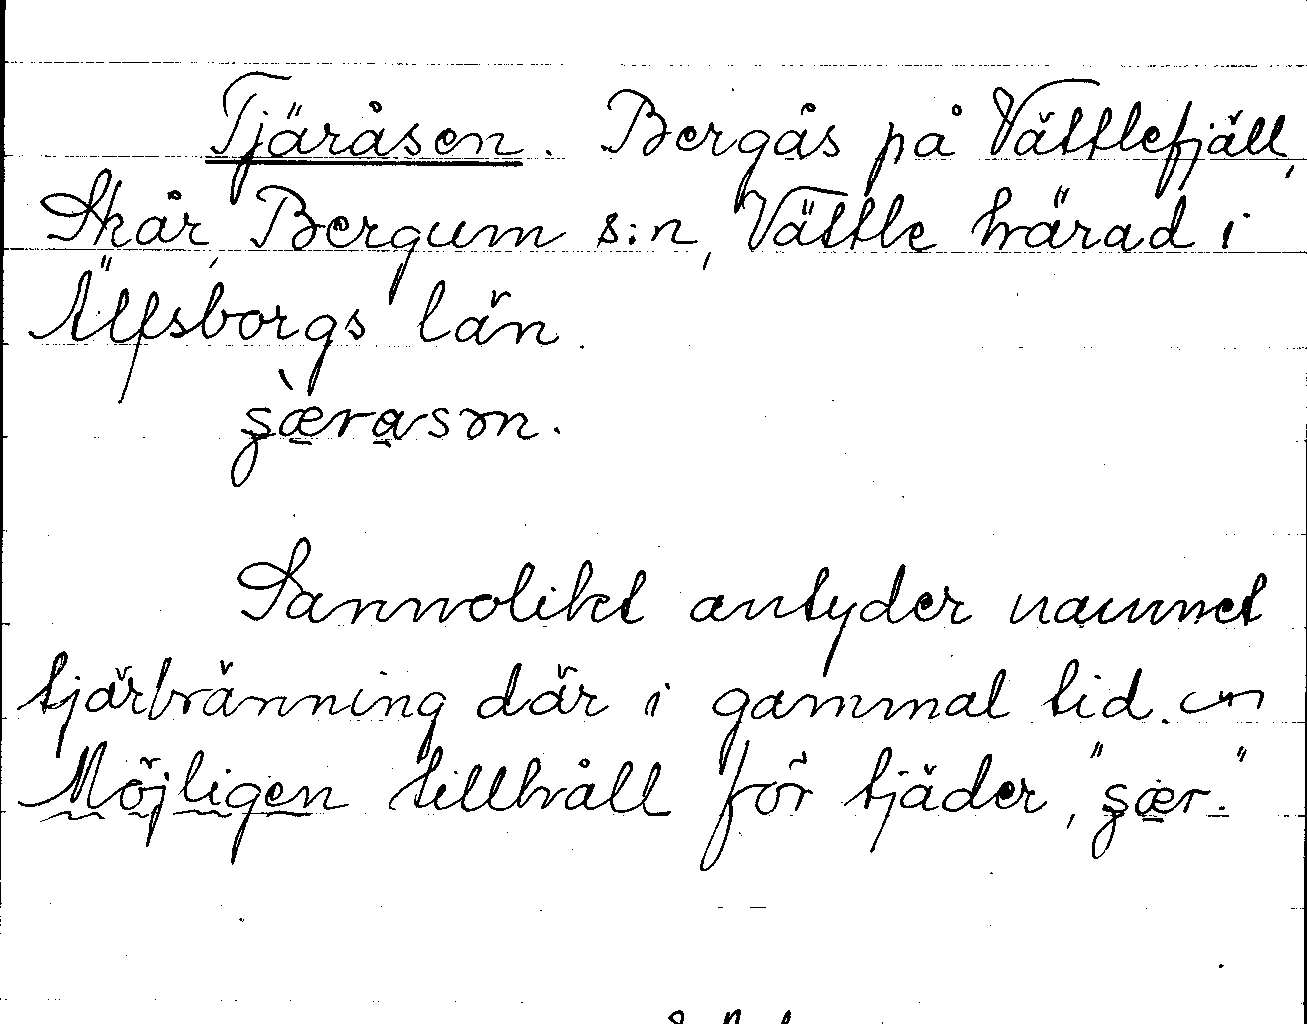 Tjäråsen. Bergås på Vättlefjäll,
Skår, Bergum s:n, Vättle härad i
Älfsborgs län.
ʂæ̀rasən.
Sannolikt antyder namnet
tjärbränning där i gammal tid.
Möjligen tillhåll för tjäder, "ʂær."